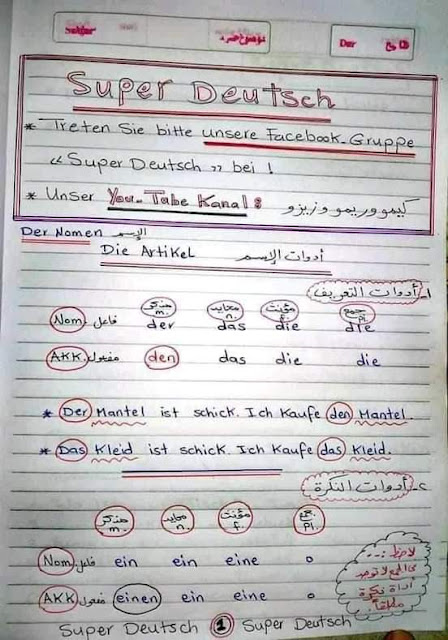 موضوع الدرس
Super Deutsch
* Treten Sie bitte unsere Facebook-Gruppe
« Super Deutsch » bei !
* Unser You-Tabe Kanal : كيمو وريمو وزيزو
Der Nomen الإسم
Die Artikel أدوات الإسم
١- أدوات التعريف
مذكر m. محايد n. مؤنث f. جمع pl.
Nom فاعل der das die die
AKK مفعول den das die die
* Der Mantel ist schick. Ich Kaufe den Mantel.
* Das Kleid ist schick. Ich Kaufe das Kleid.
٢- أدوات النكرة
مذكر m. محايد n. مؤنث f. جمع pl.
Nom فاعل ein ein eine o
AKK مفعول einen ein eine o
لاحظ :...
في الجمع لا توجد
أداة نكرة
مطلقاً
Super Deutsch 1 Super Deutsch